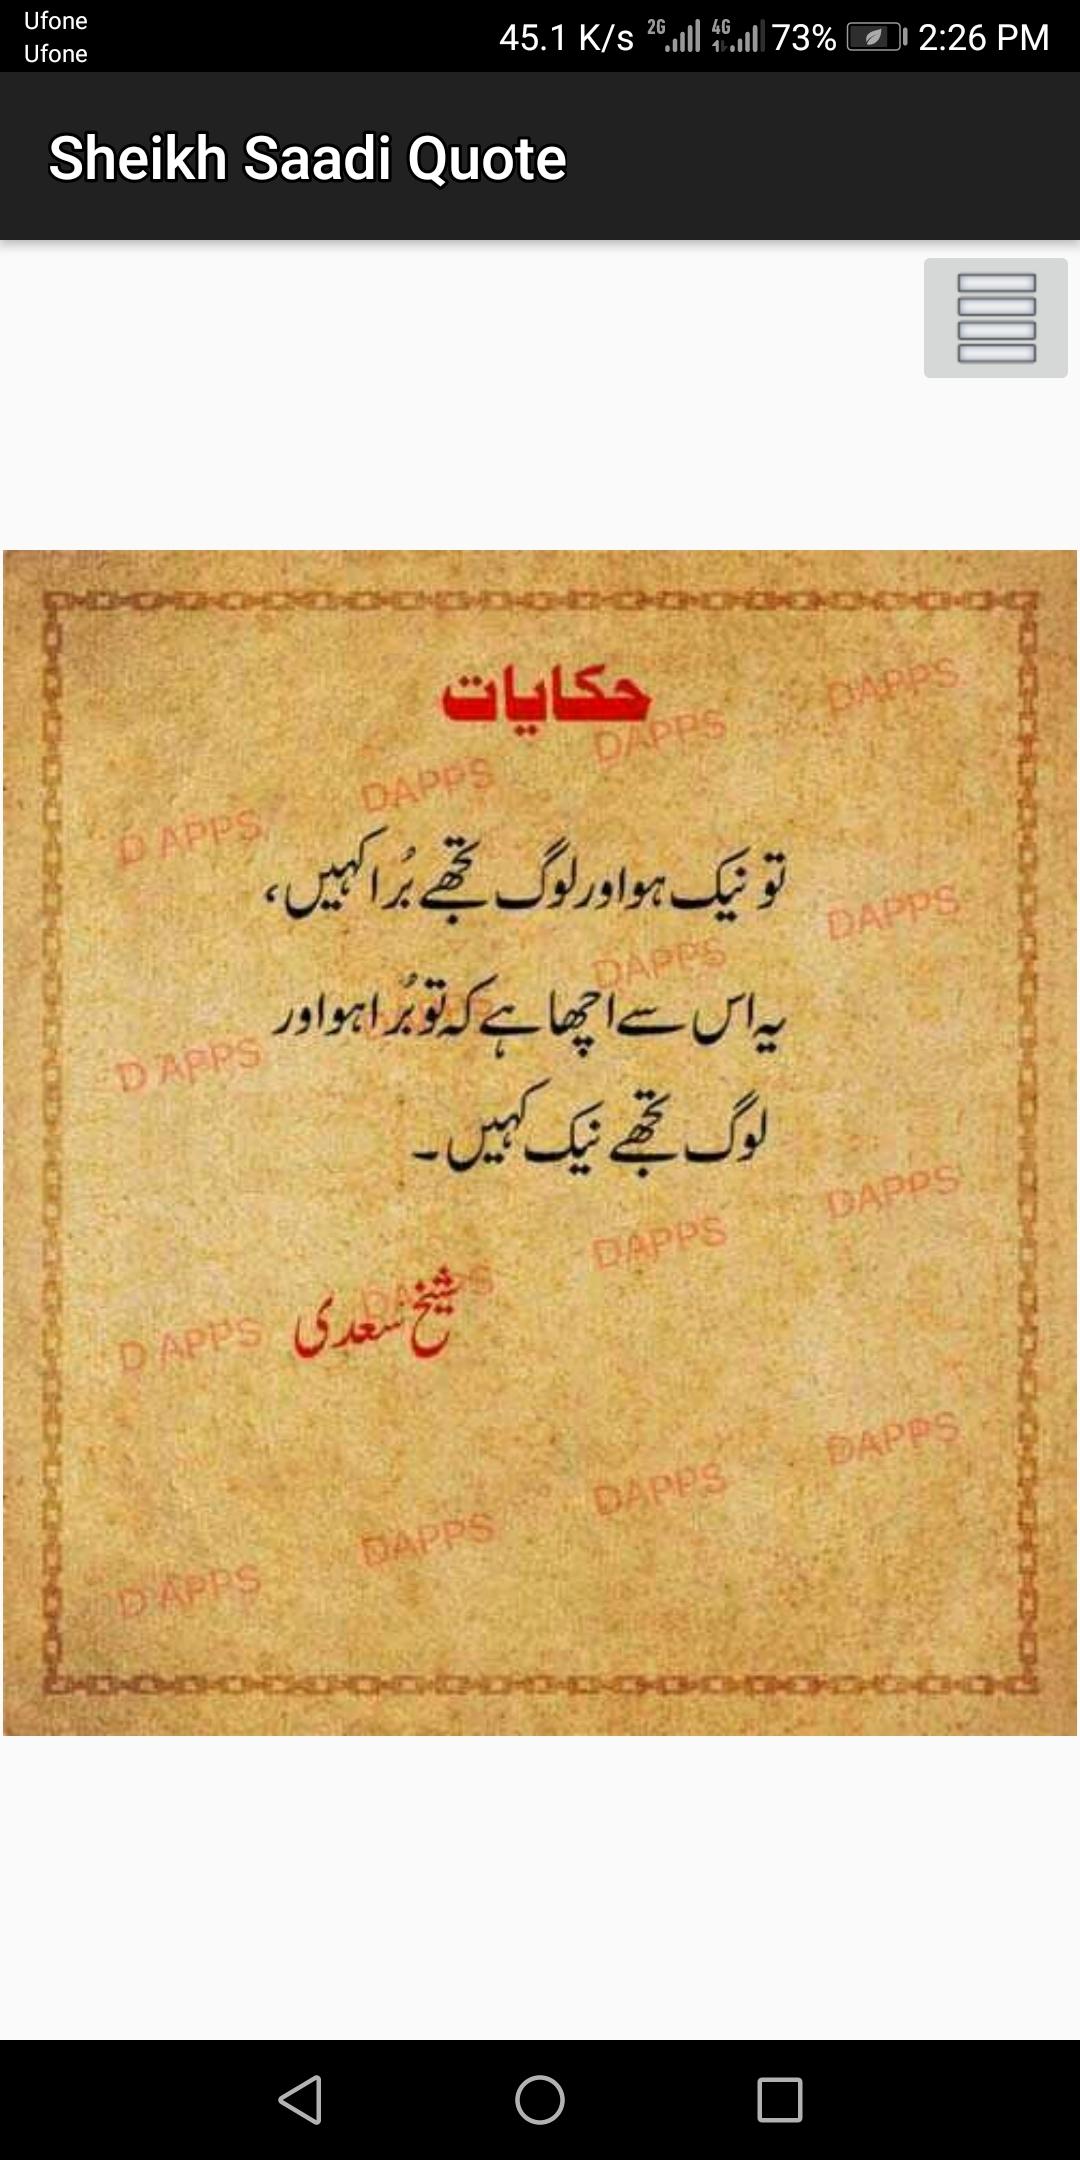 Ufone
Ufone
45.1 K/s 2G 4G 73% 2:26 PM
Sheikh Saadi Quote
حکایات
DAPPS
DAPPS
DAPPS
D APPS
تو نیک ہو اور لوگ تجھے بُرا کہیں،
DAPPS
DAPPS
یہ اس سے اچھا ہے کہ تو بُرا ہو اور
D APPS
لوگ تجھے نیک کہیں۔
DAPPS
DAPPS
DAPPS
شیخ سعدی
D APPS
DAPPS
DAPPS
DAPPS
D APPS